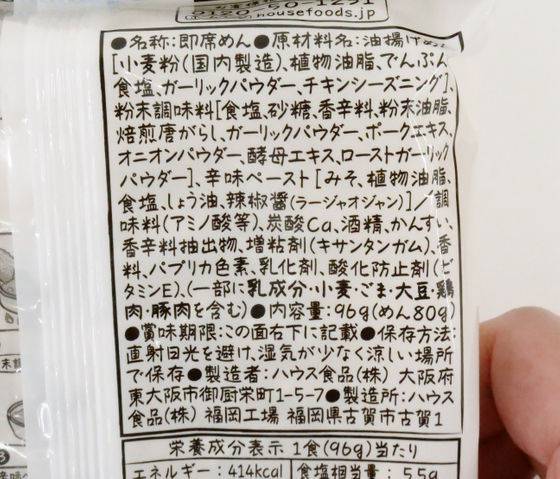 housefoods.jp
●名称:即席めん●原材料名:油揚げめん
[小麦粉(国内製造)、植物油脂、でんぷん、
食塩、ガーリックパウダー、チキンシーズニング]、
粉末調味料[食塩、砂糖、香辛料、粉末油脂、
焙煎唐がらし、ガーリックパウダー、ポークエキス、
オニオンパウダー、酵母エキス、ローストガーリック
パウダー]、辛味ペースト[みそ、植物油脂、
食塩、しょう油、辣椒醤(ラージャオジャン)]/調
味料(アミノ酸等)、炭酸Ca、酒精、かんすい、
香辛料抽出物、増粘剤(キサンタンガム)、香
料、パプリカ色素、乳化剤、酸化防止剤(ビ
タミンE)、(一部に乳成分・小麦・ごま・大豆・鶏
肉・豚肉を含む)●内容量:96g(めん80g)
●賞味期限:この面右下に記載●保存方法:
直射日光を避け、湿気が少なく涼しい場所
で保存●製造者:ハウス食品(株) 大阪府
東大阪市御厨栄町1-5-7●製造所:ハウス
食品(株) 福岡工場 福岡県古賀市古賀1
栄養成分表示 1食(96g)当たり
エネルギー:414kcal 食塩相当量:5.5g